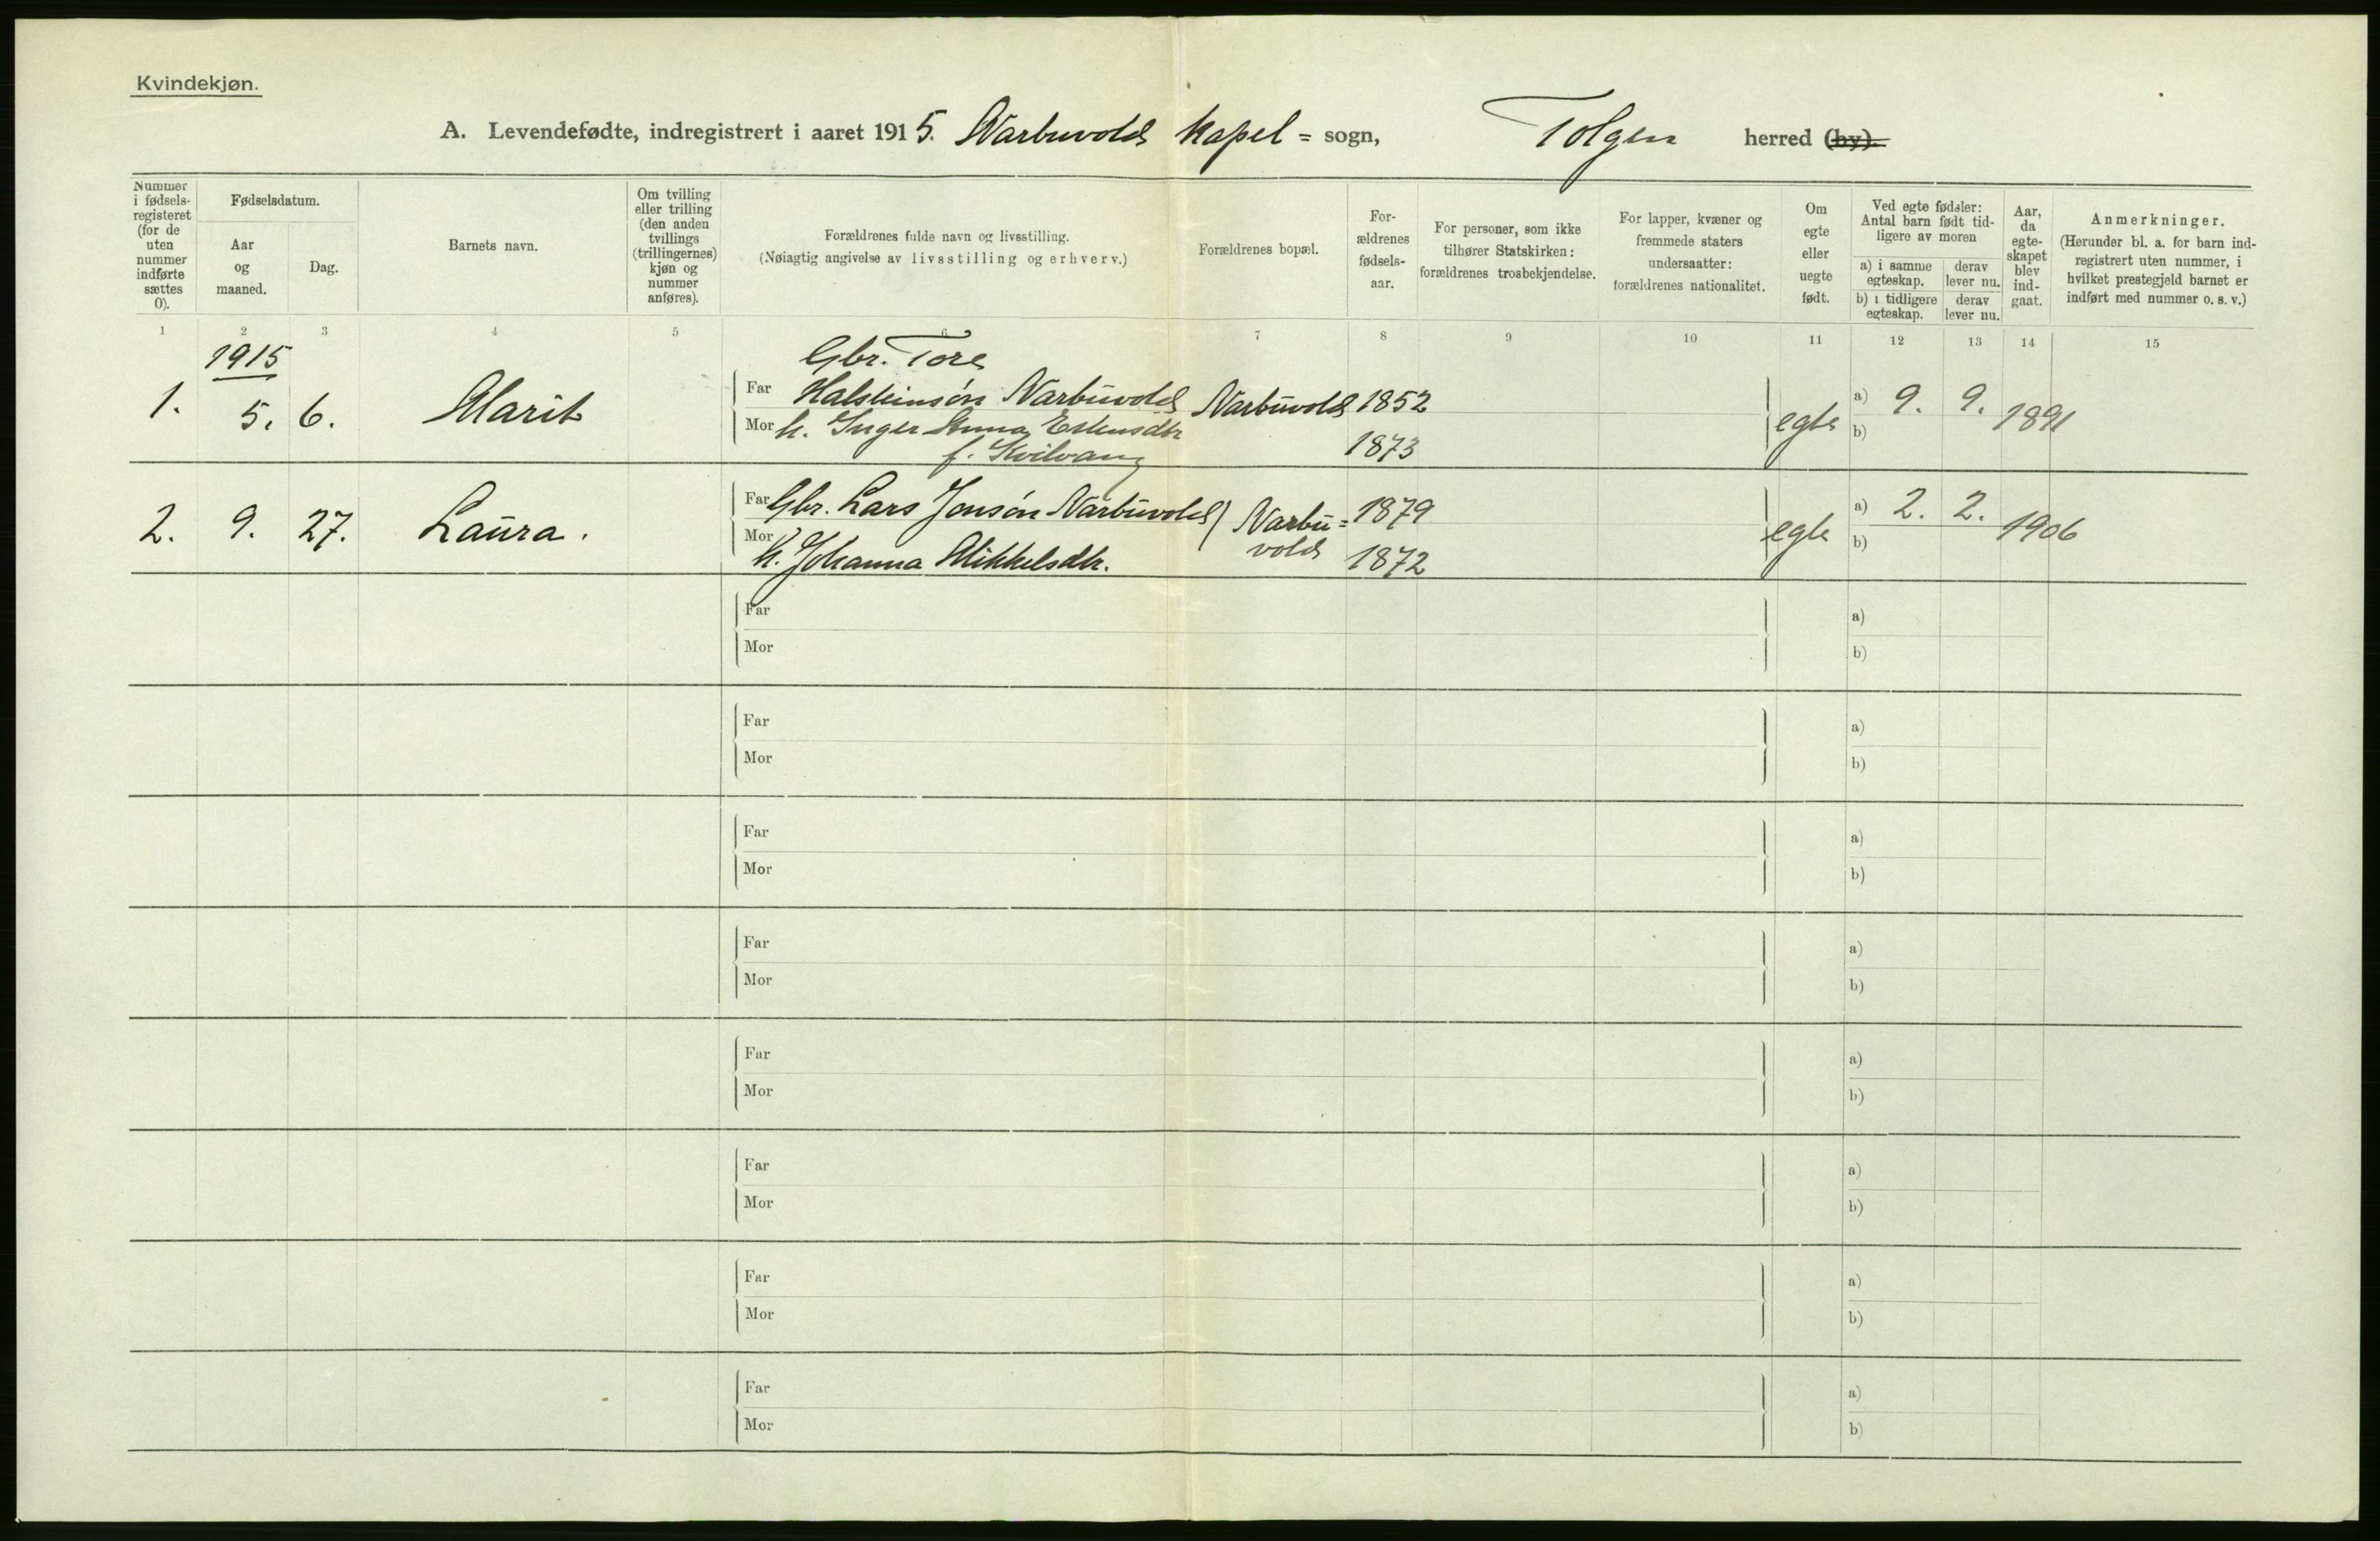 Kvindekjøn.
A. Levendefødte, indregistrert i aaret 1915. Narbuvold Kapel = sogn, Tolgen herred (by).
Nummer i fødsels-registeret (for de uten nummer indførte sættes 0).
Fødselsdatum.
Aar og maaned.
Dag.
Barnets navn.
Om tvilling eller trilling (den anden tvillings (trillingernes) kjøn og nummer anføres).
Forældrenes fulde navn og livsstilling.
(Nøiagtig angivelse av livsstilling og erhverv.)
Forældrenes bopæl.
For-ældrenes fødsels-aar.
For personer, som ikke tilhører Statskirken: forældrenes trosbekjendelse.
For lapper, kvæner og fremmede staters undersaatter: forældrenes nationalitet.
Om egte eller uegte født.
Ved egte fødsler: Antal barn født tid-ligere av moren
a) i samme egteskap.
derav lever nu.
b) i tidligere egteskap.
derav lever nu.
Aar, da egte-skapet blev ind-gaat.
Anmerkninger.
(Herunder bl. a. for barn ind-registrert uten nummer, i hvilket prestegjeld barnet er indført med nummer o. s. v.)
1 2 3 4 5 6 7 8 9 10 11 12 13 14 15
1915
Gbr. Tore
1. 5. 6. Marit Far Halsteinsøn Narbuvold Narbuvold 1852 egte a) 9. 9. 1891
Mor h. Inger Anna Estensdtr 1873 b)
f. Kvilvang
2. 9. 27. Laura. Far Gbr. Lars Jonsøn Narbuvold Narbu= 1879 egte a) 2. 2. 1906
Mor h. Johanna Mikkelsdtr. vold 1872 b)
Far a)
Mor b)
Far a)
Mor b)
Far a)
Mor b)
Far a)
Mor b)
Far a)
Mor b)
Far a)
Mor b)
Far a)
Mor b)
Far a)
Mor b)